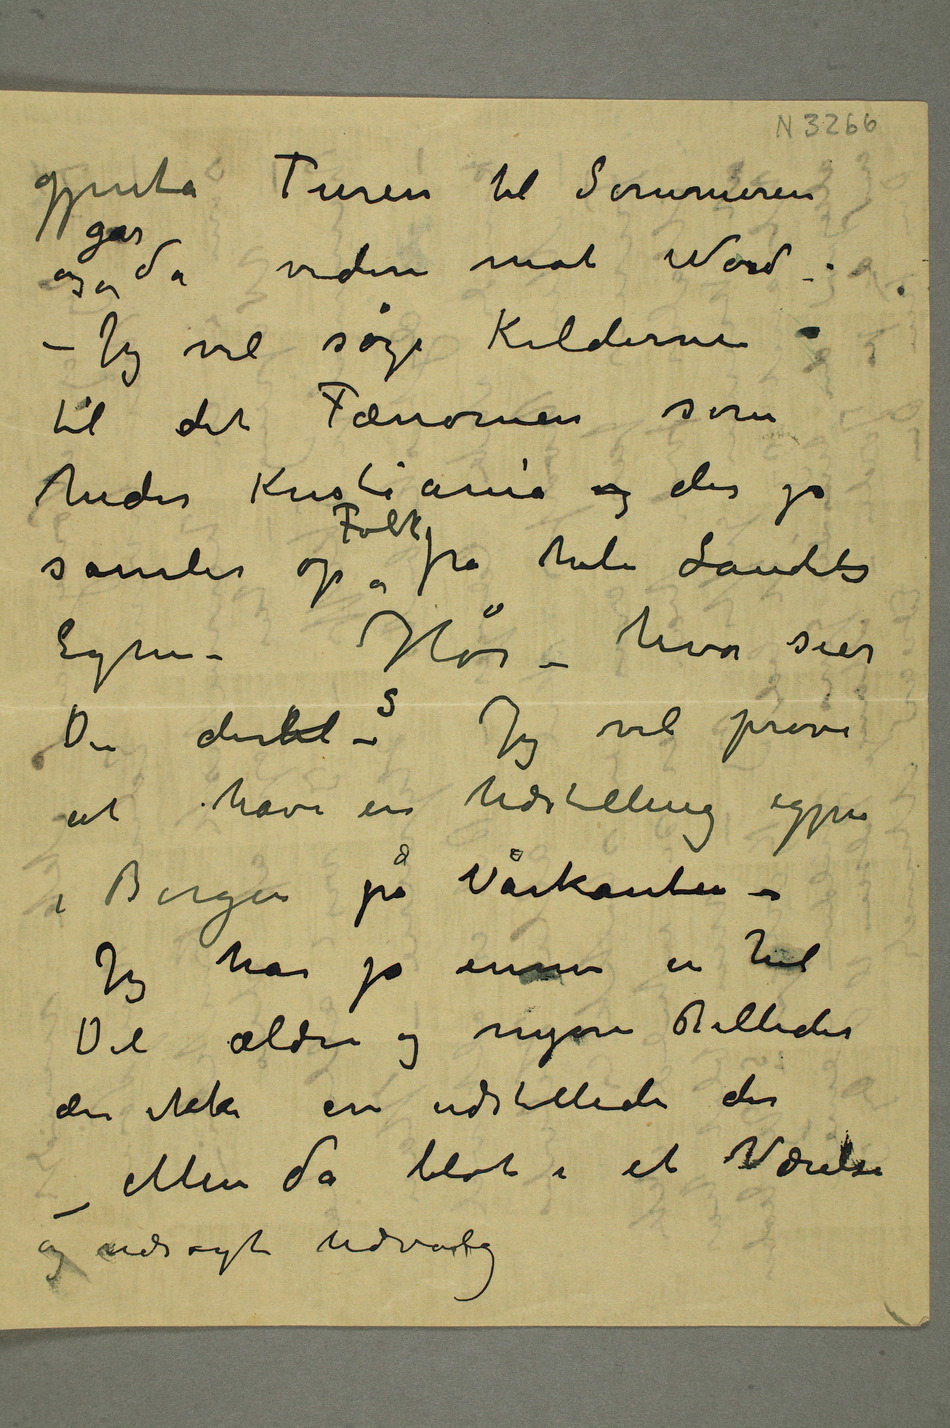 N 3266
gjenta Turen til Sommeren
og går da videre mot Nord –.
– Jeg vil søge Kilderne
til det Fænomen som
heder Kristiania og der jo
samler op Folk fra hele Landets
Egne – Hør – hvor sier
Du det – S Jeg vil prøve
at have en Udstilling igjen
i Bergen på Vårkanten –
Jeg har jo ennu en hel
Del ældre og nyere Billeder
der ikke ere udstillede der
– Men da blot i et Værelse
og udsøgt Udvalg